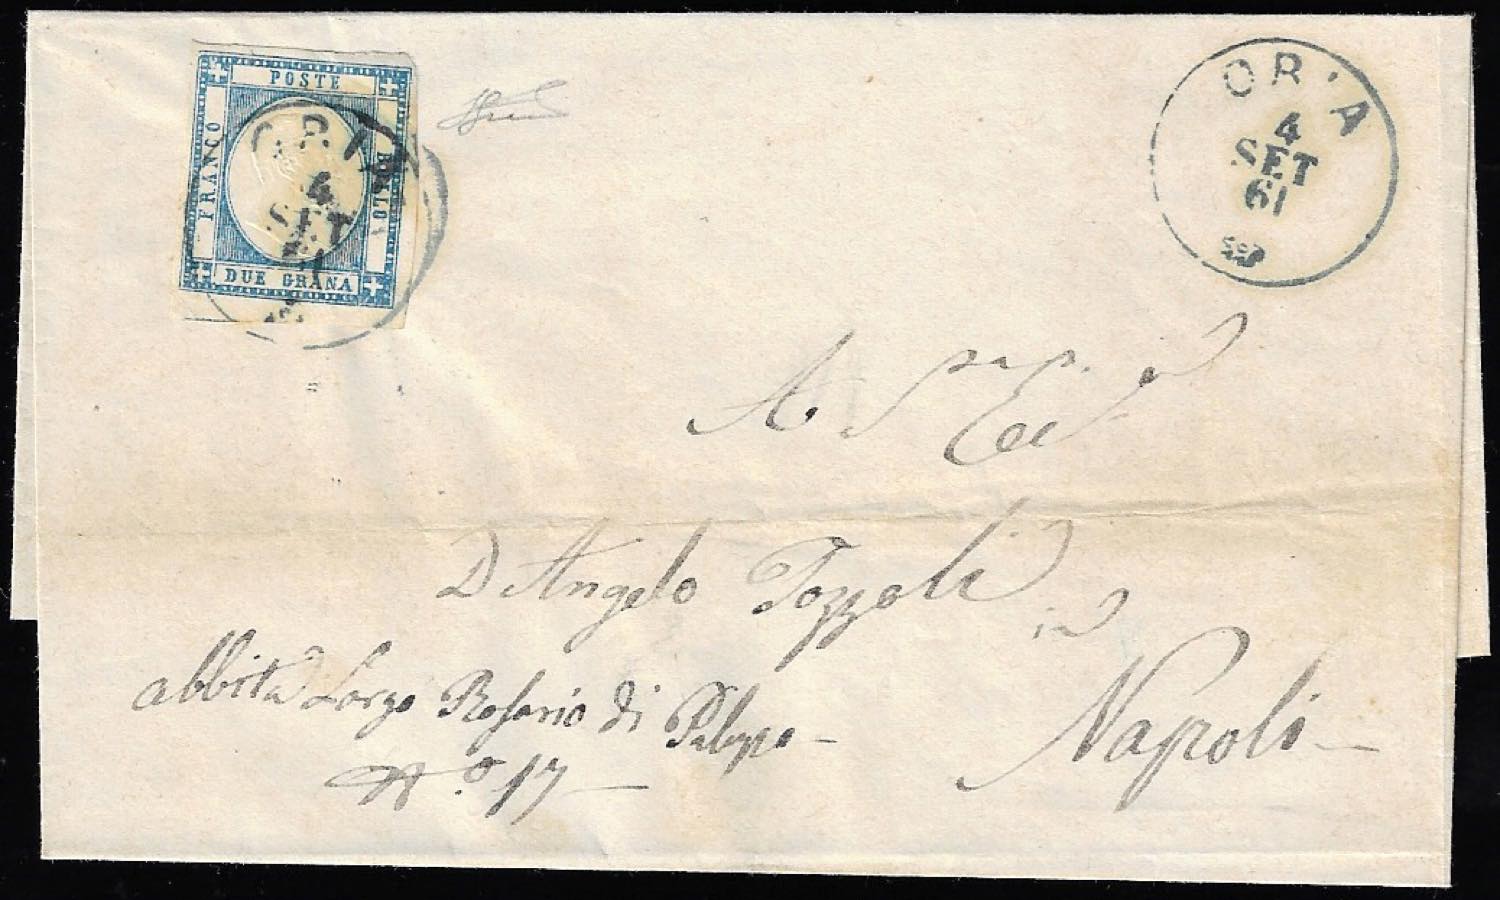 POSTE
FRANCO
BOLLO
DUE GRANA
ORIA
4
SET
61
ORIA
4
SET
61
A
D Angelo Tozzoli
in
Napoli
abbita Largo Rosario di Palazzo
N.o 17